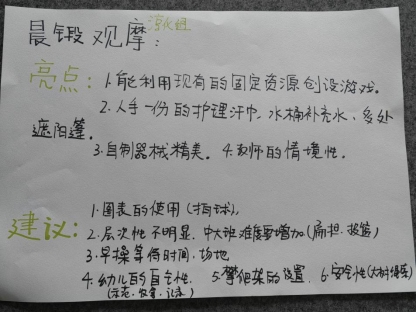 晨锻观摩：
亮点：1.能利用现有的固定资源创设游戏。
2.人手一份的护理汗巾、水桶补充水、多处
遮阳蓬。
3.自制器械精美。4.教师的情境性。
建议：1.图表的使用(拍球)。
2.层次性不明显，中大班难度要增加(扁担、披篮)
3.早操等待时间，场地
4.幼儿的自主性 5.攀爬架的设置 6.安全性(大树
(示范、